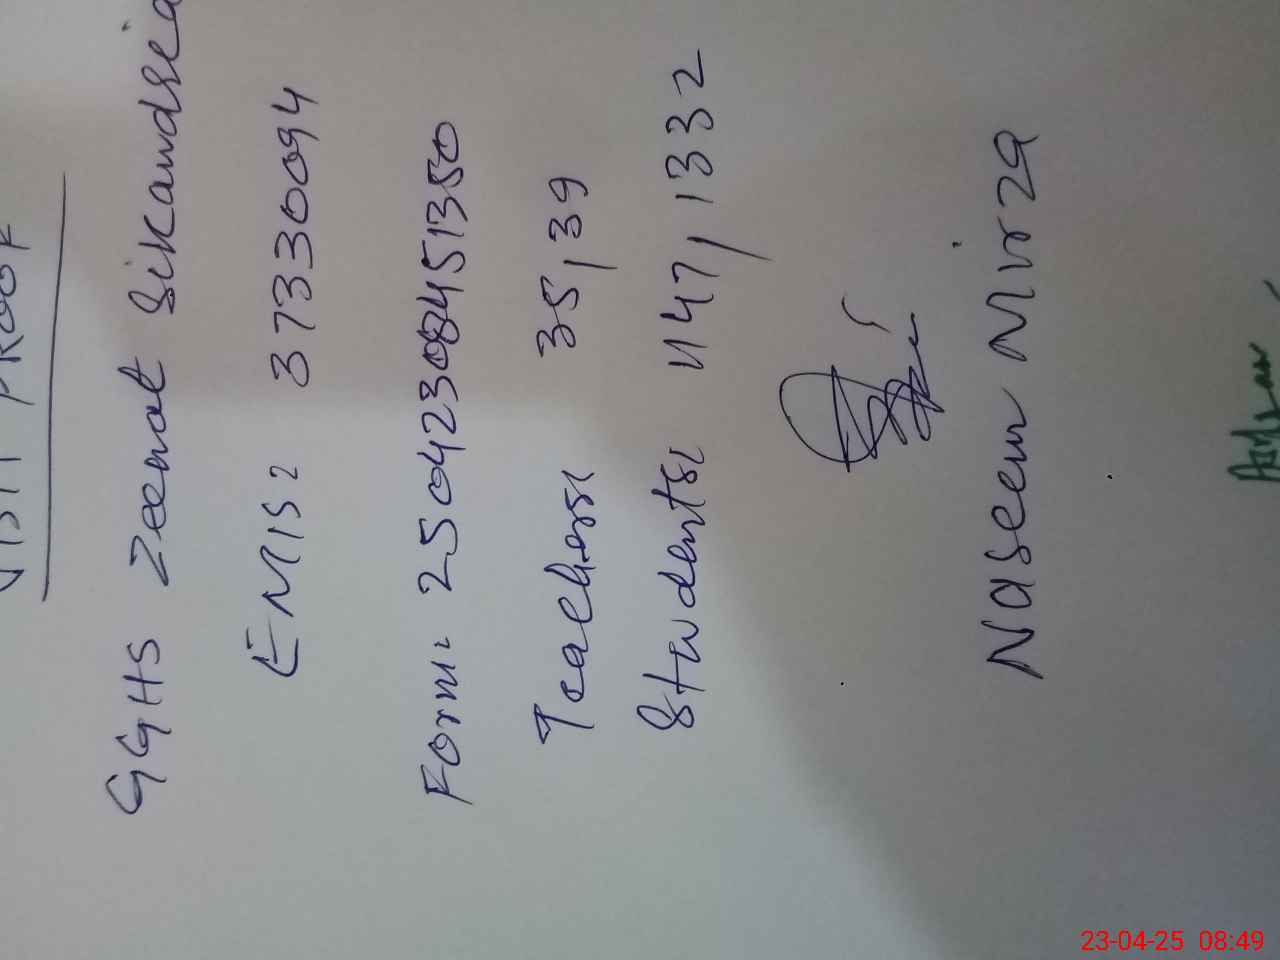 VISIT PROOF
GGHS Zeenat Sikandria
EMIS: 37330094
Form: 25042308451350
Teachers: 35, 39
Students: 1147, 1332
Naseem Mirza
23-04-25 08:49